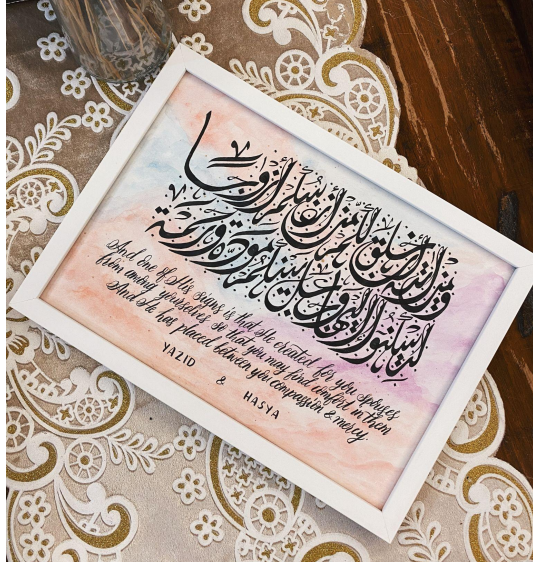 ومن آياته أن خلق لكم من أنفسكم أزواجا
لتسكنوا إليها وجعل بينكم مودة ورحمة
And one of His signs is that He created for you spouses
from among yourselves so that you may find comfort in them
And He has placed between you compassion & mercy.
YAZID
&
HASYA